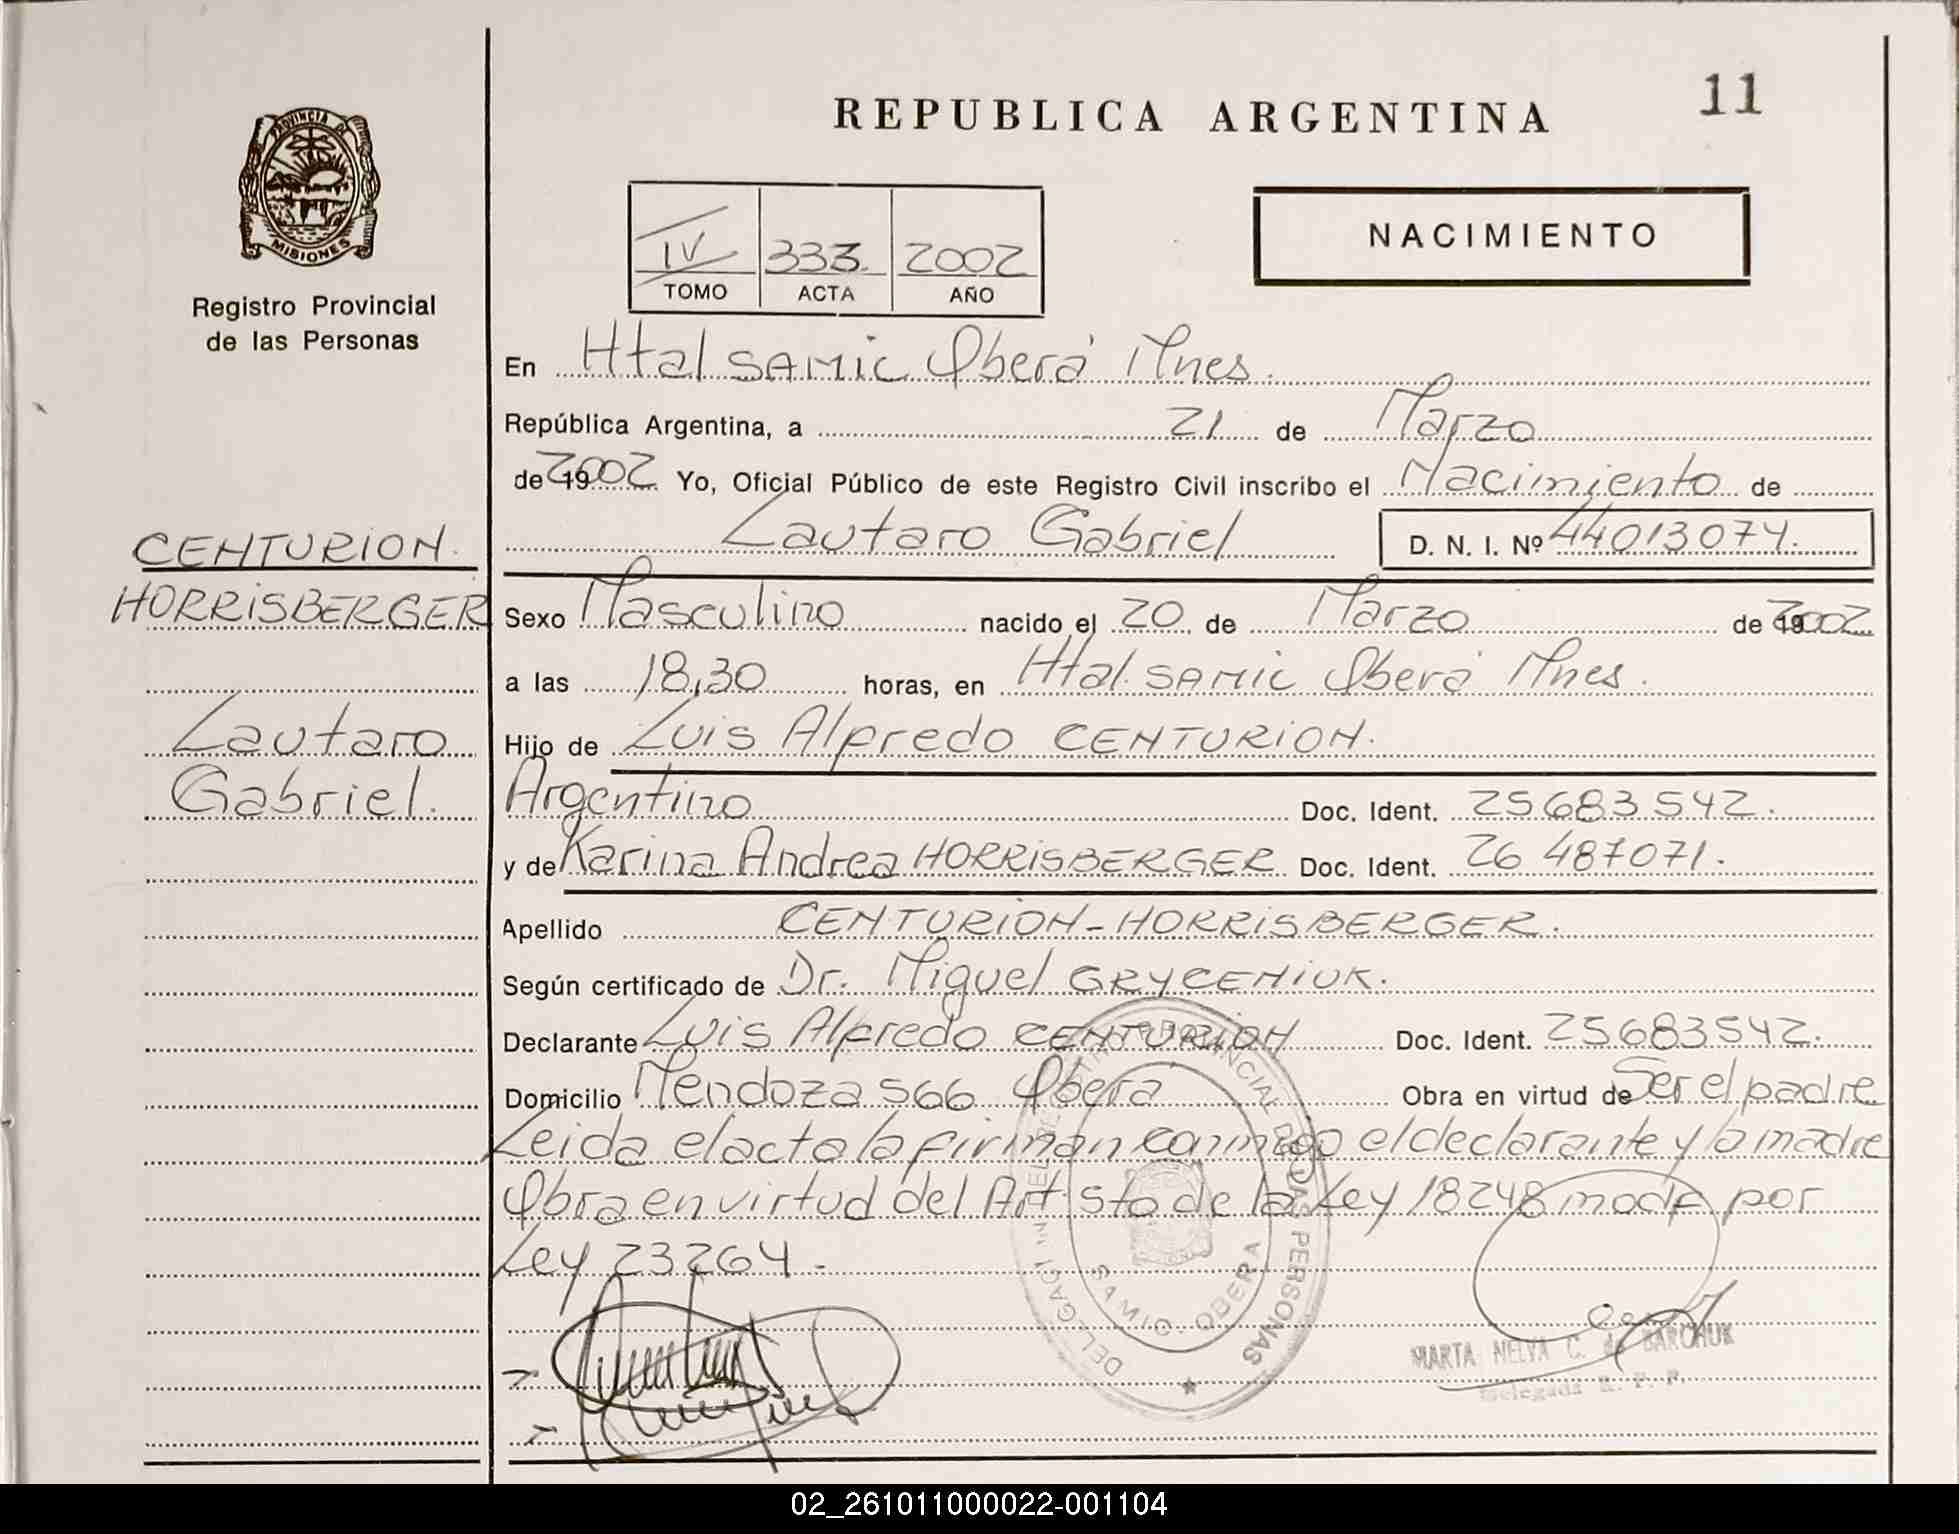 11
REPUBLICA ARGENTINA
PROVINCIA DE
MISIONES
Registro Provincial
de las Personas
NACIMIENTO
IV 333 2002
TOMO ACTA AÑO
En Htal SAMIC Oberá Mnes.
República Argentina, a 21 de Marzo
de 19 2002 Yo, Oficial Público de este Registro Civil inscribo el Nacimiento de
Lautaro Gabriel D. N. I. Nº 44013074.
CENTURION.
HORRISBERGER
Lautaro
Gabriel.
Sexo Masculino nacido el 20 de Marzo de 19 2002
a las 18,30 horas, en Htal. SAMIC Oberá Mnes.
Hijo de Luis Alfredo CENTURION.
Argentino Doc. Ident. 25683542.
y de Karina Andrea HORRISBERGER Doc. Ident. 26 487071.
Apellido CENTURION-HORRISBERGER.
Según certificado de Dr. Miguel GRYCENIUK.
Declarante Luis Alfredo CENTURION Doc. Ident. 25683542.
Domicilio Mendoza 566 Oberá Obra en virtud de Ser el padre
Leida el acta la firman conmigo el declarante y la madre
Obra en virtud del Art 5to de la Ley 18248 modf por
Ley 23264.-
REGISTRO PROVINCIAL DE LAS PERSONAS
SAMIC. OBERA
MARTA NELVA C. de BARCHUK
Delegada R. P. P.
02_261011000022-001104